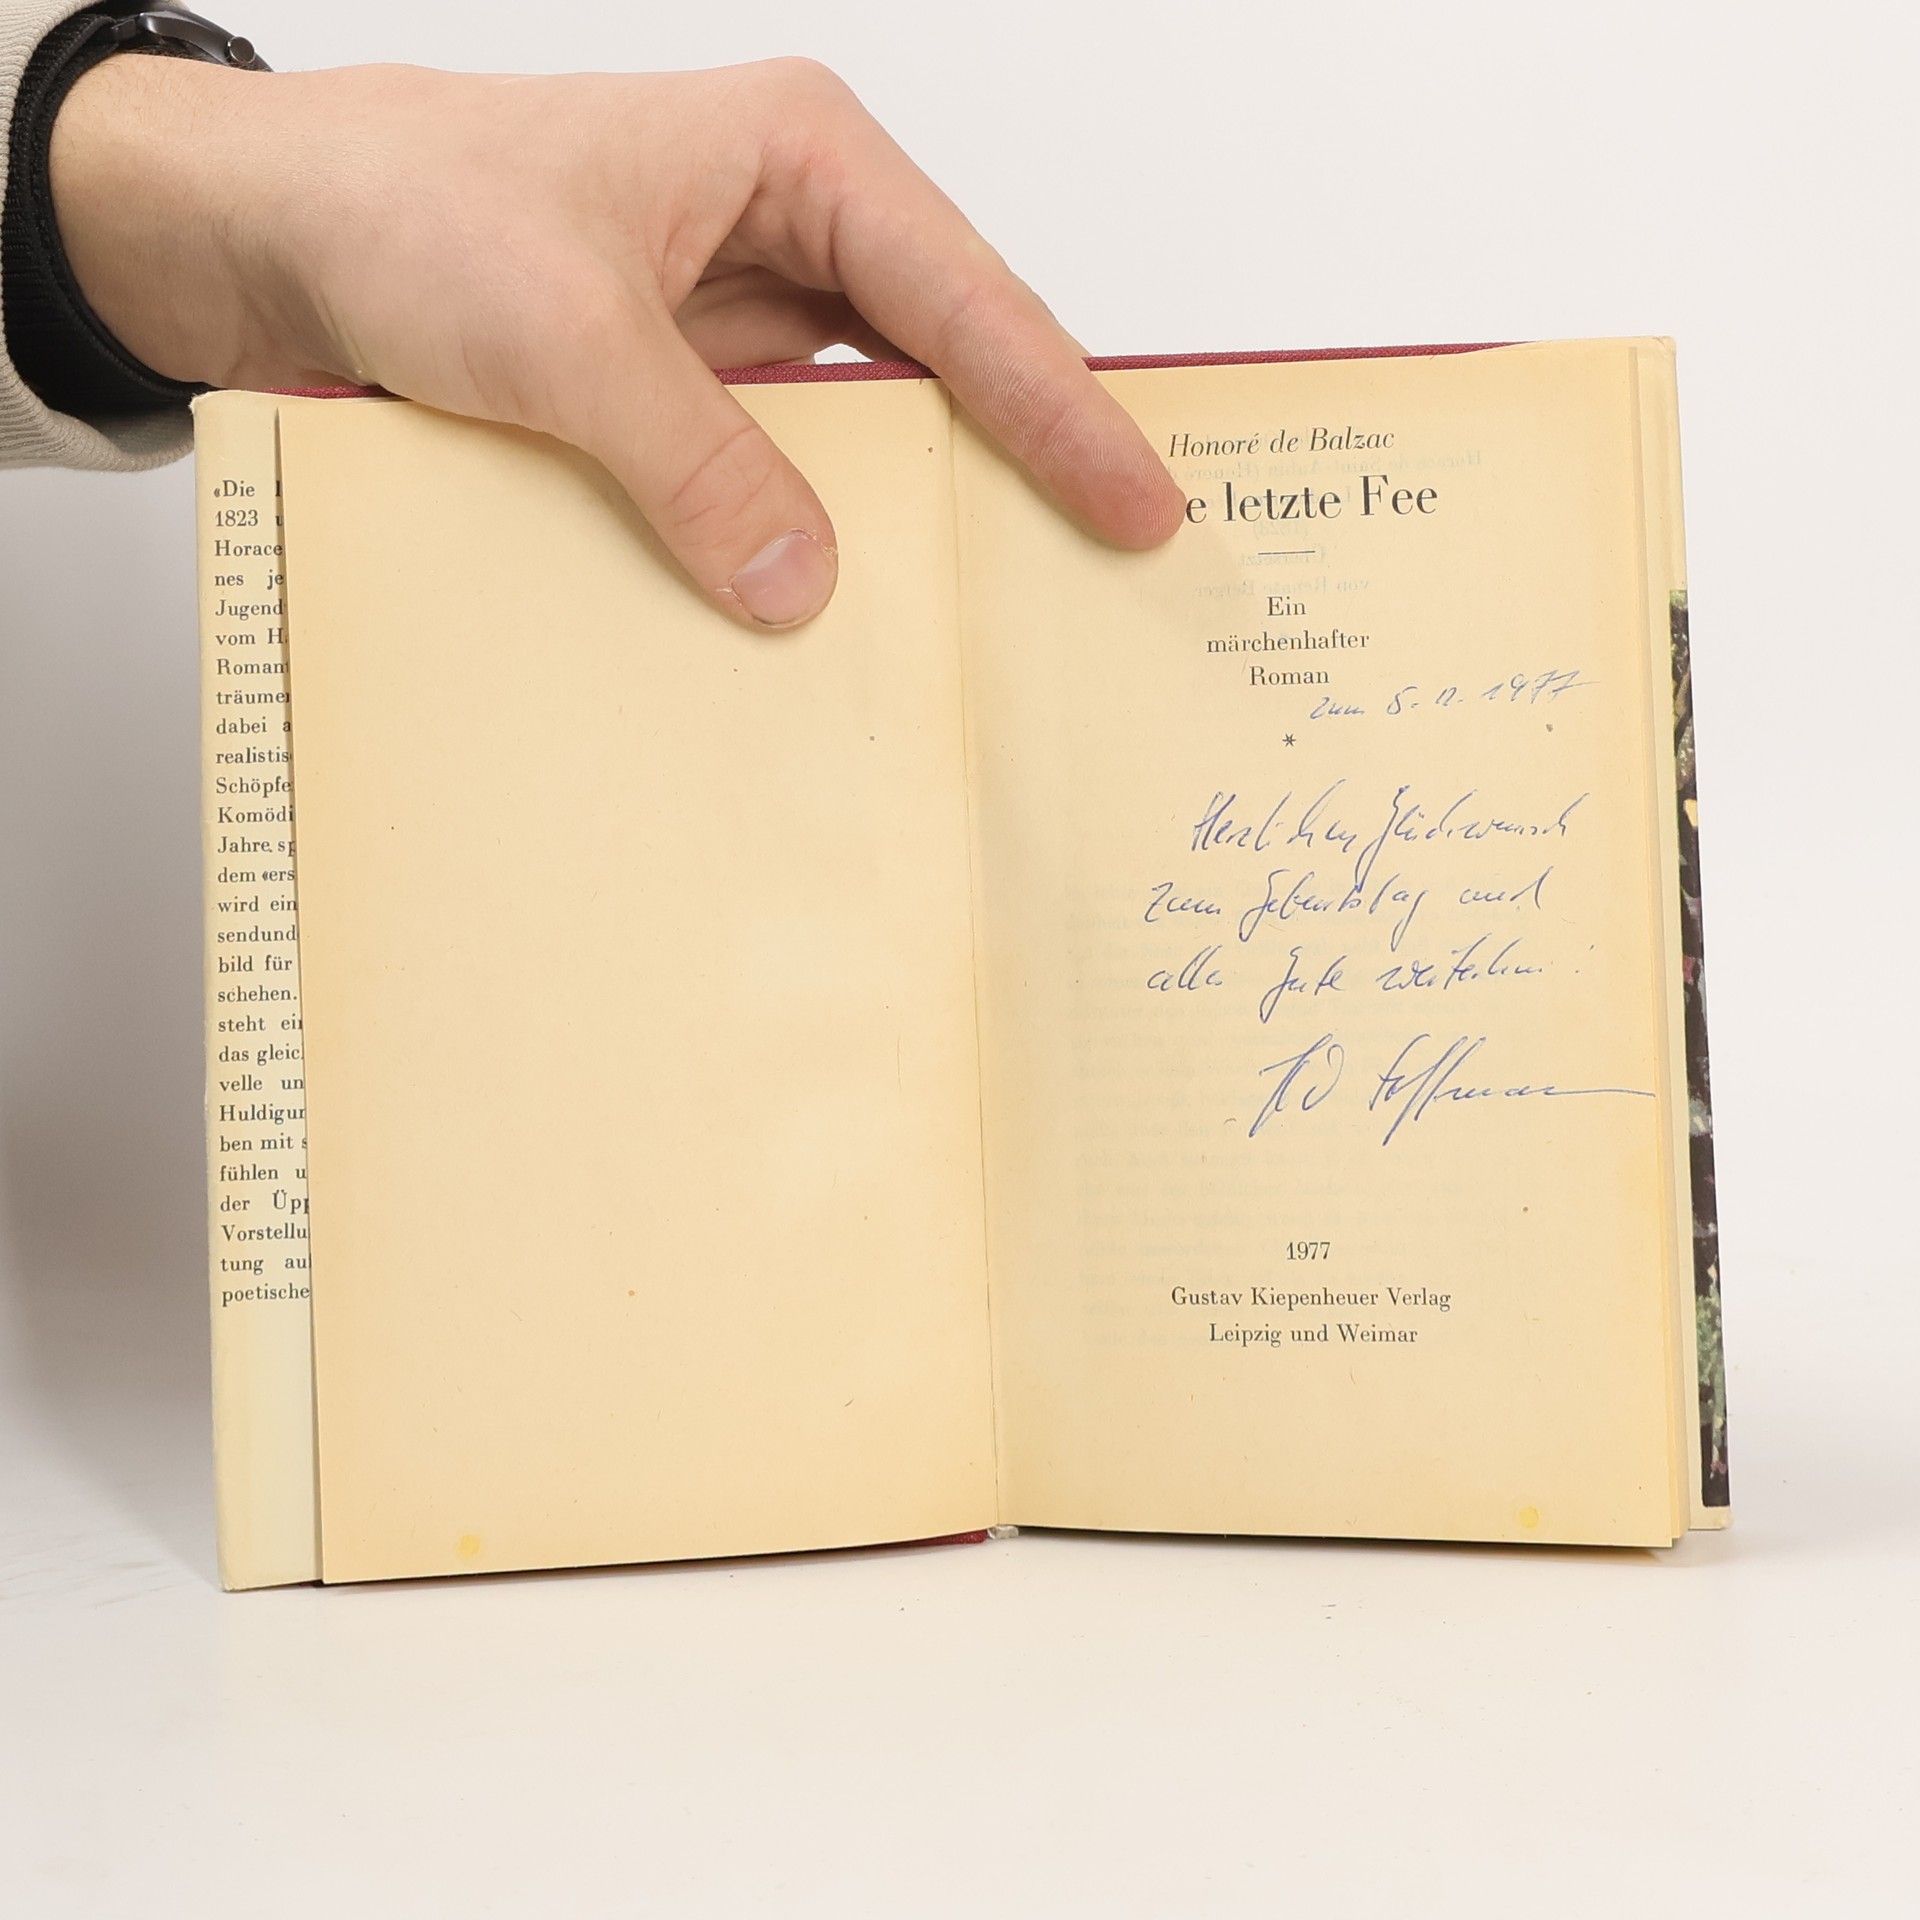 «Die
1823
Horace
nes je
Jugend
vom
Roman
träume
dabei a
realistis
Schöpfe
Komödi
Jahre sp
dem «ers
wird ein
sendund
bild für
schehen.
steht ei
das gleic
velle un
Huldigun
ben mit s
fühlen u
der Üpp
Vorstellu
tung au
poetische
Honoré de Balzac
e letzte Fee
Ein
märchenhafter
Roman
zum 5. 12. 1977
*
Herzlichen Glückwunsch
zum Geburtstag und
alles Gute weiterhin!
Hoffmann
1977
Gustav Kiepenheuer Verlag
Leipzig und Weimar